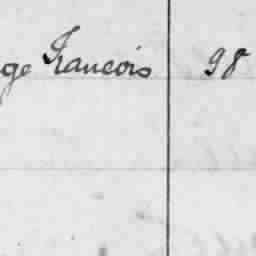 ge Francois 98